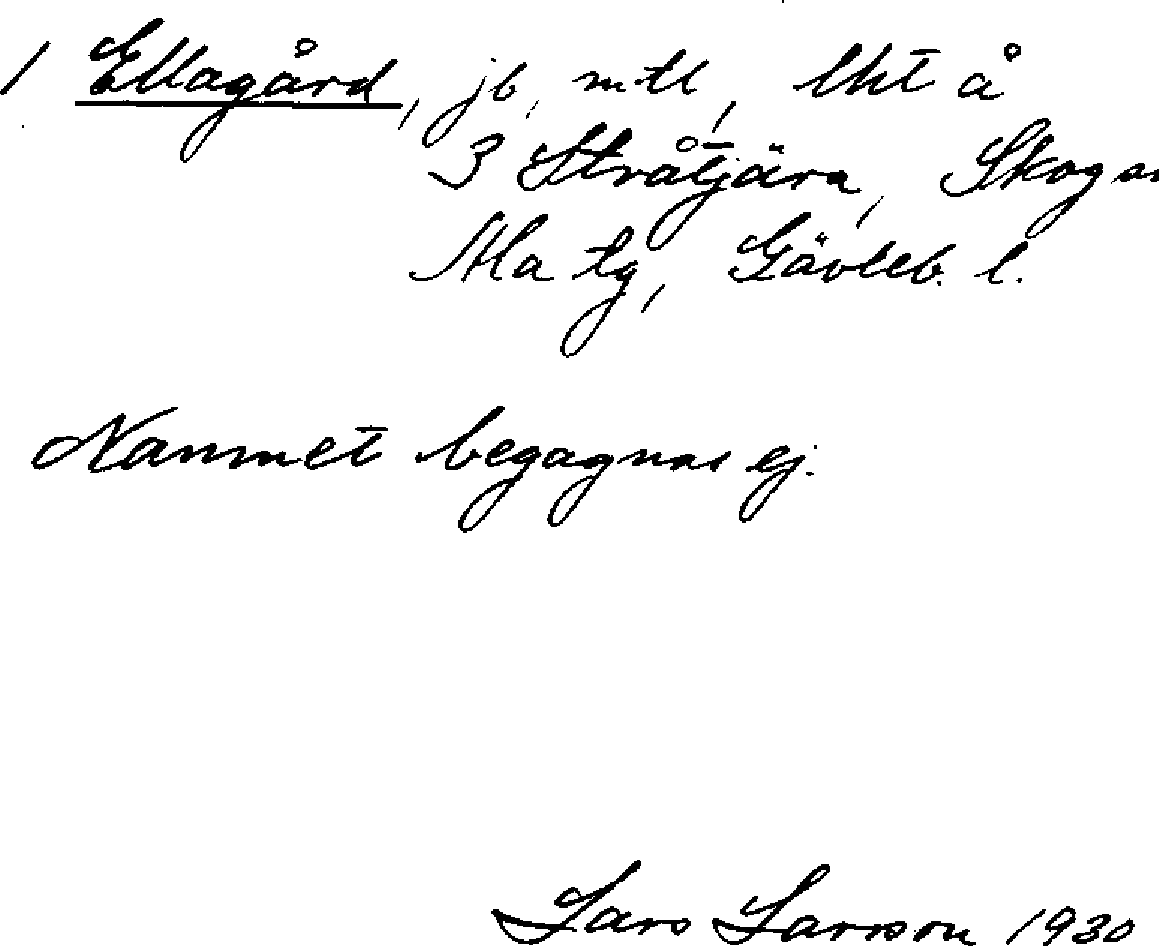 1 Ellagård, jb, mtl, lht å
3 Stråtjära, Skog sn
Ala tg, Gävleb. l.
Namnet begagnas ej.
Lars Larsson 1930